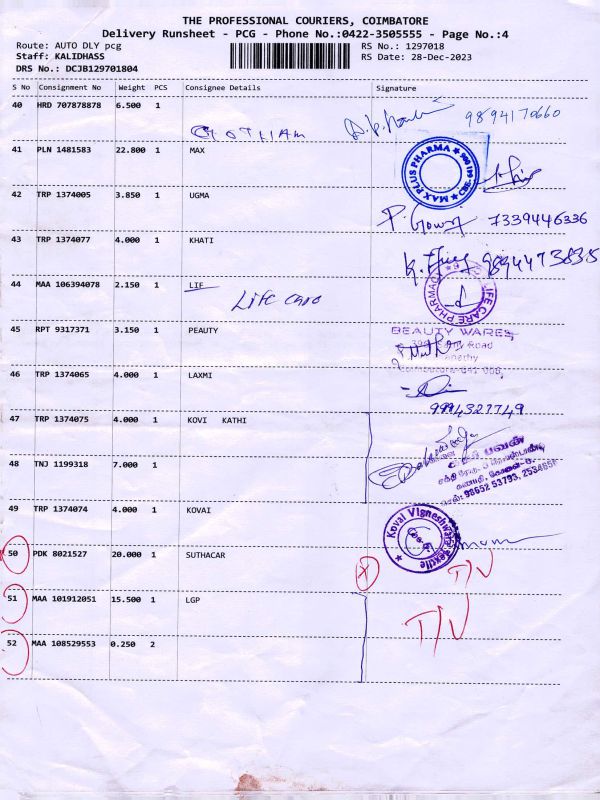 THE PROFESSIONAL COURIERS, COIMBATORE
Delivery Runsheet - PCG - Phone No.:0422-3505555 - Page No.:4
Route: AUTO DLY pcg
RS No.: 1297018
Staff: KALIDHASS
RS Date: 28-Dec-2023
DRS No.: DCJB129701804
S No Consignment No Weight PCS Consignee Details Signature
40 HRD 707878878 6.500 1
9894170660
GOTHAM
41 PLN 1481583 22.800 1 MAX
MAX PLUS PHARMA
42 TRP 1374005 3.850 1 UGMA
P. Gowri 7339446336
43 TRP 1374077 4.000 1 KHATI
9894473835
44 MAA 106394078 2.150 1 LIF
LIFE CARE
LIFE CARE PHARMACY
45 RPT 9317371 3.150 1 PEAUTY
BEAUTY WARES
Road
46 TRP 1374065 4.000 1 LAXMI
9994327749
47 TRP 1374075 4.000 1 KOVI KATHI
48 TNJ 1199318 7.000 1
98652 53793, 2534856
49 TRP 1374074 4.000 1 KOVAI
Kovai Vigneshwara Textile
50 PDK 8021527 20.000 1 SUTHACAR
T/V
51 MAA 101912051 15.500 1 LGP
T/V
52 MAA 108529553 0.250 2